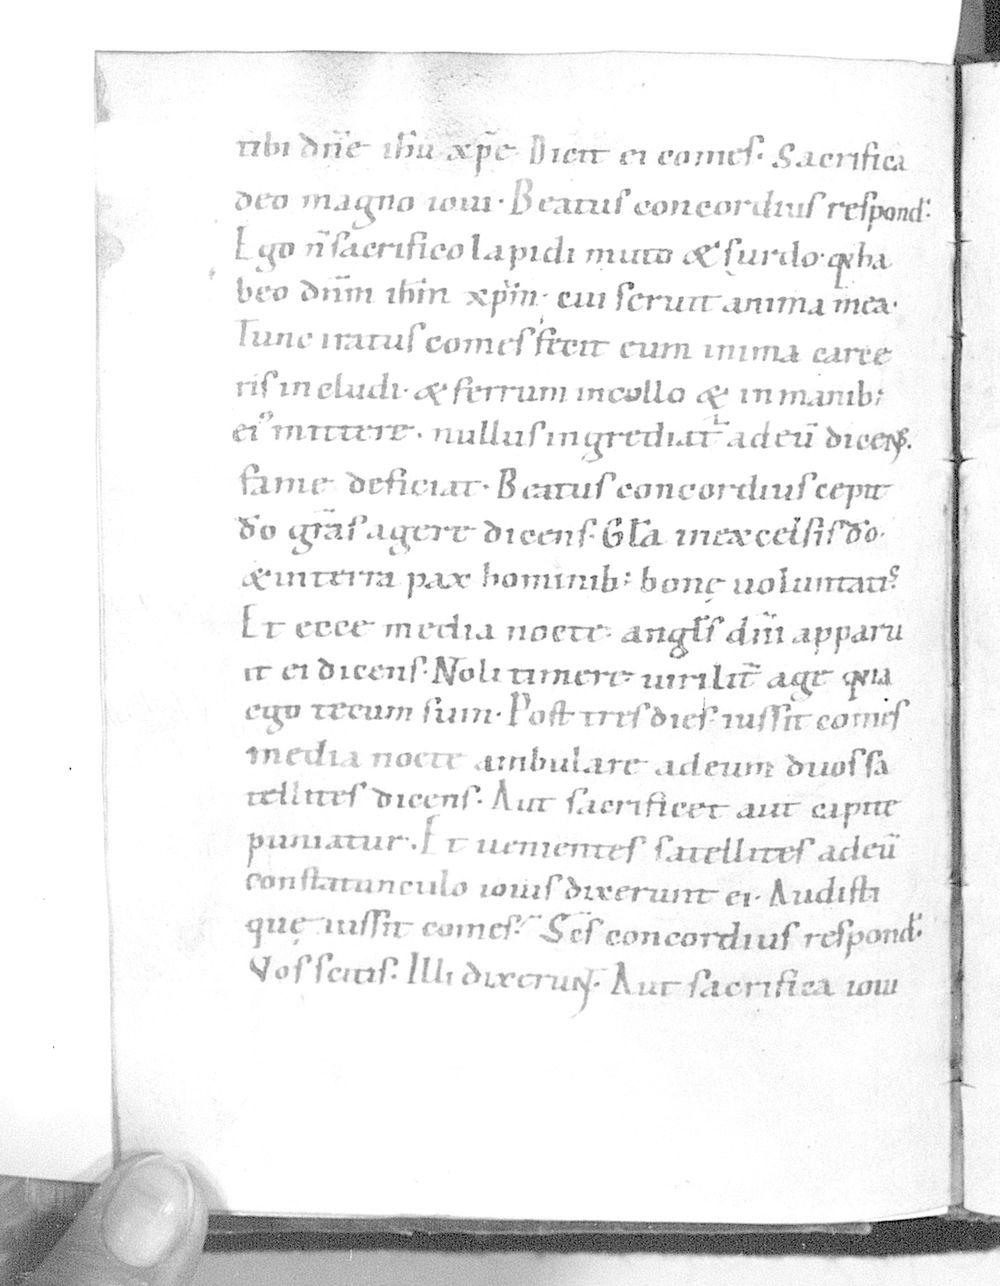 tibi dñe ihu xp̃e Dicit ei comes. Sacrifica
deo magno ioui. Beatus concordius respond̃.
Ego ñ sacrifico lapidi muto & surdo. q̃a ha
beo dñm ihm̃ xp̃m. cui seruit anima mea.
Tunc iratus comes fecit eum in ima carce
ris includi. & ferrum in collo & in manib;
ei᾿ mittere. nullus ingrediat̃ ad eũ dicens.
fame deficiat. Beatus concordius cepit
d̃o grãs agere dicens. Gl̃a in excelsis d̃o.
& in terra pax hominib; bonę uoluntatis
Et ecce media nocte. angl̃s dñi apparu
it ei dicens. Noli timere. uirilit̃ age quia
ego tecum sum. Post tres dies. iussit comes
media nocte ambulare ad eum duos sa
tellites dicens. Aut sacrificet aut capite
puniatur. Et uenientes satellites ad eũ
cum statunculo iouis dixerunt ei. Audisti
quę iussit comes. Sc̃s concordius respond̃.
Vos scitis. Illi dixerunt. Aut sacrifica ioui